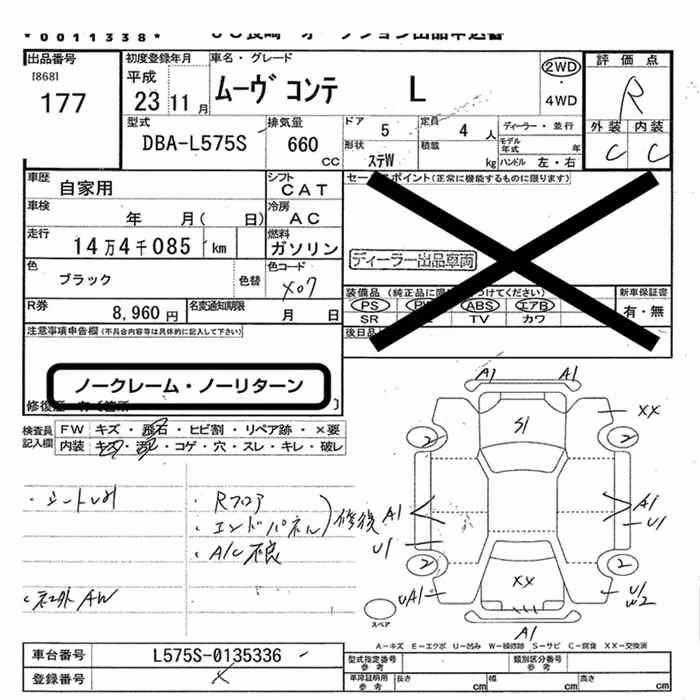 *0011338*
出品番号
[868]
177
初度登録年月
平成
23 11 月
車名・グレード
ムーヴ コンテ L
2WD
・
4WD
評価点
R
外装 内装
C C
型式
DBA-L575S
排気量
660
CC
ドア
5
定員
4 人
形状
ステW
積載
kg
ディーラー・並行
モデル年式 年
ハンドル 左・右
車歴
自家用
シフト
CAT
車検
年 月( 日)
冷房
AC
走行
14万4千085 km
燃料
ガソリン
色
ブラック
色替
色コード
X07
R券
8,960 円
名変通知期限
月 日
セールスポイント(正常に機能するものに限ります)
ディーラー出品車両
装備品 (純正品に限り つけてください)
PS ABS エアB
SR TV カワ
新車保証書
有・無
後日品
注意事項申告欄(不具合内容等は具体的に記入して下さい)
ノークレーム・ノーリターン
検査員記入欄
FW キズ・飛石・ヒビ割・リペア跡・×要
内装 キズ・コゲ・穴・スレ・キレ・破レ
・R フロア
・エンドパネル
修復
・A/C 不良
・社外AW
A1
A1
S1
XX
2
2
A1
A1
U1
U1
2
2
XX
UA1
U1
W2
A1
スペア
A-キズ E-エクボ U-凹み W-補修跡 S-サビ C-腐食 XX-交換済
車台番号
L575S-0135336
登録番号
型式指定番号
参考
類別区分番号
参考
車庫証明用
参考
長さ cm
幅 cm
高さ cm